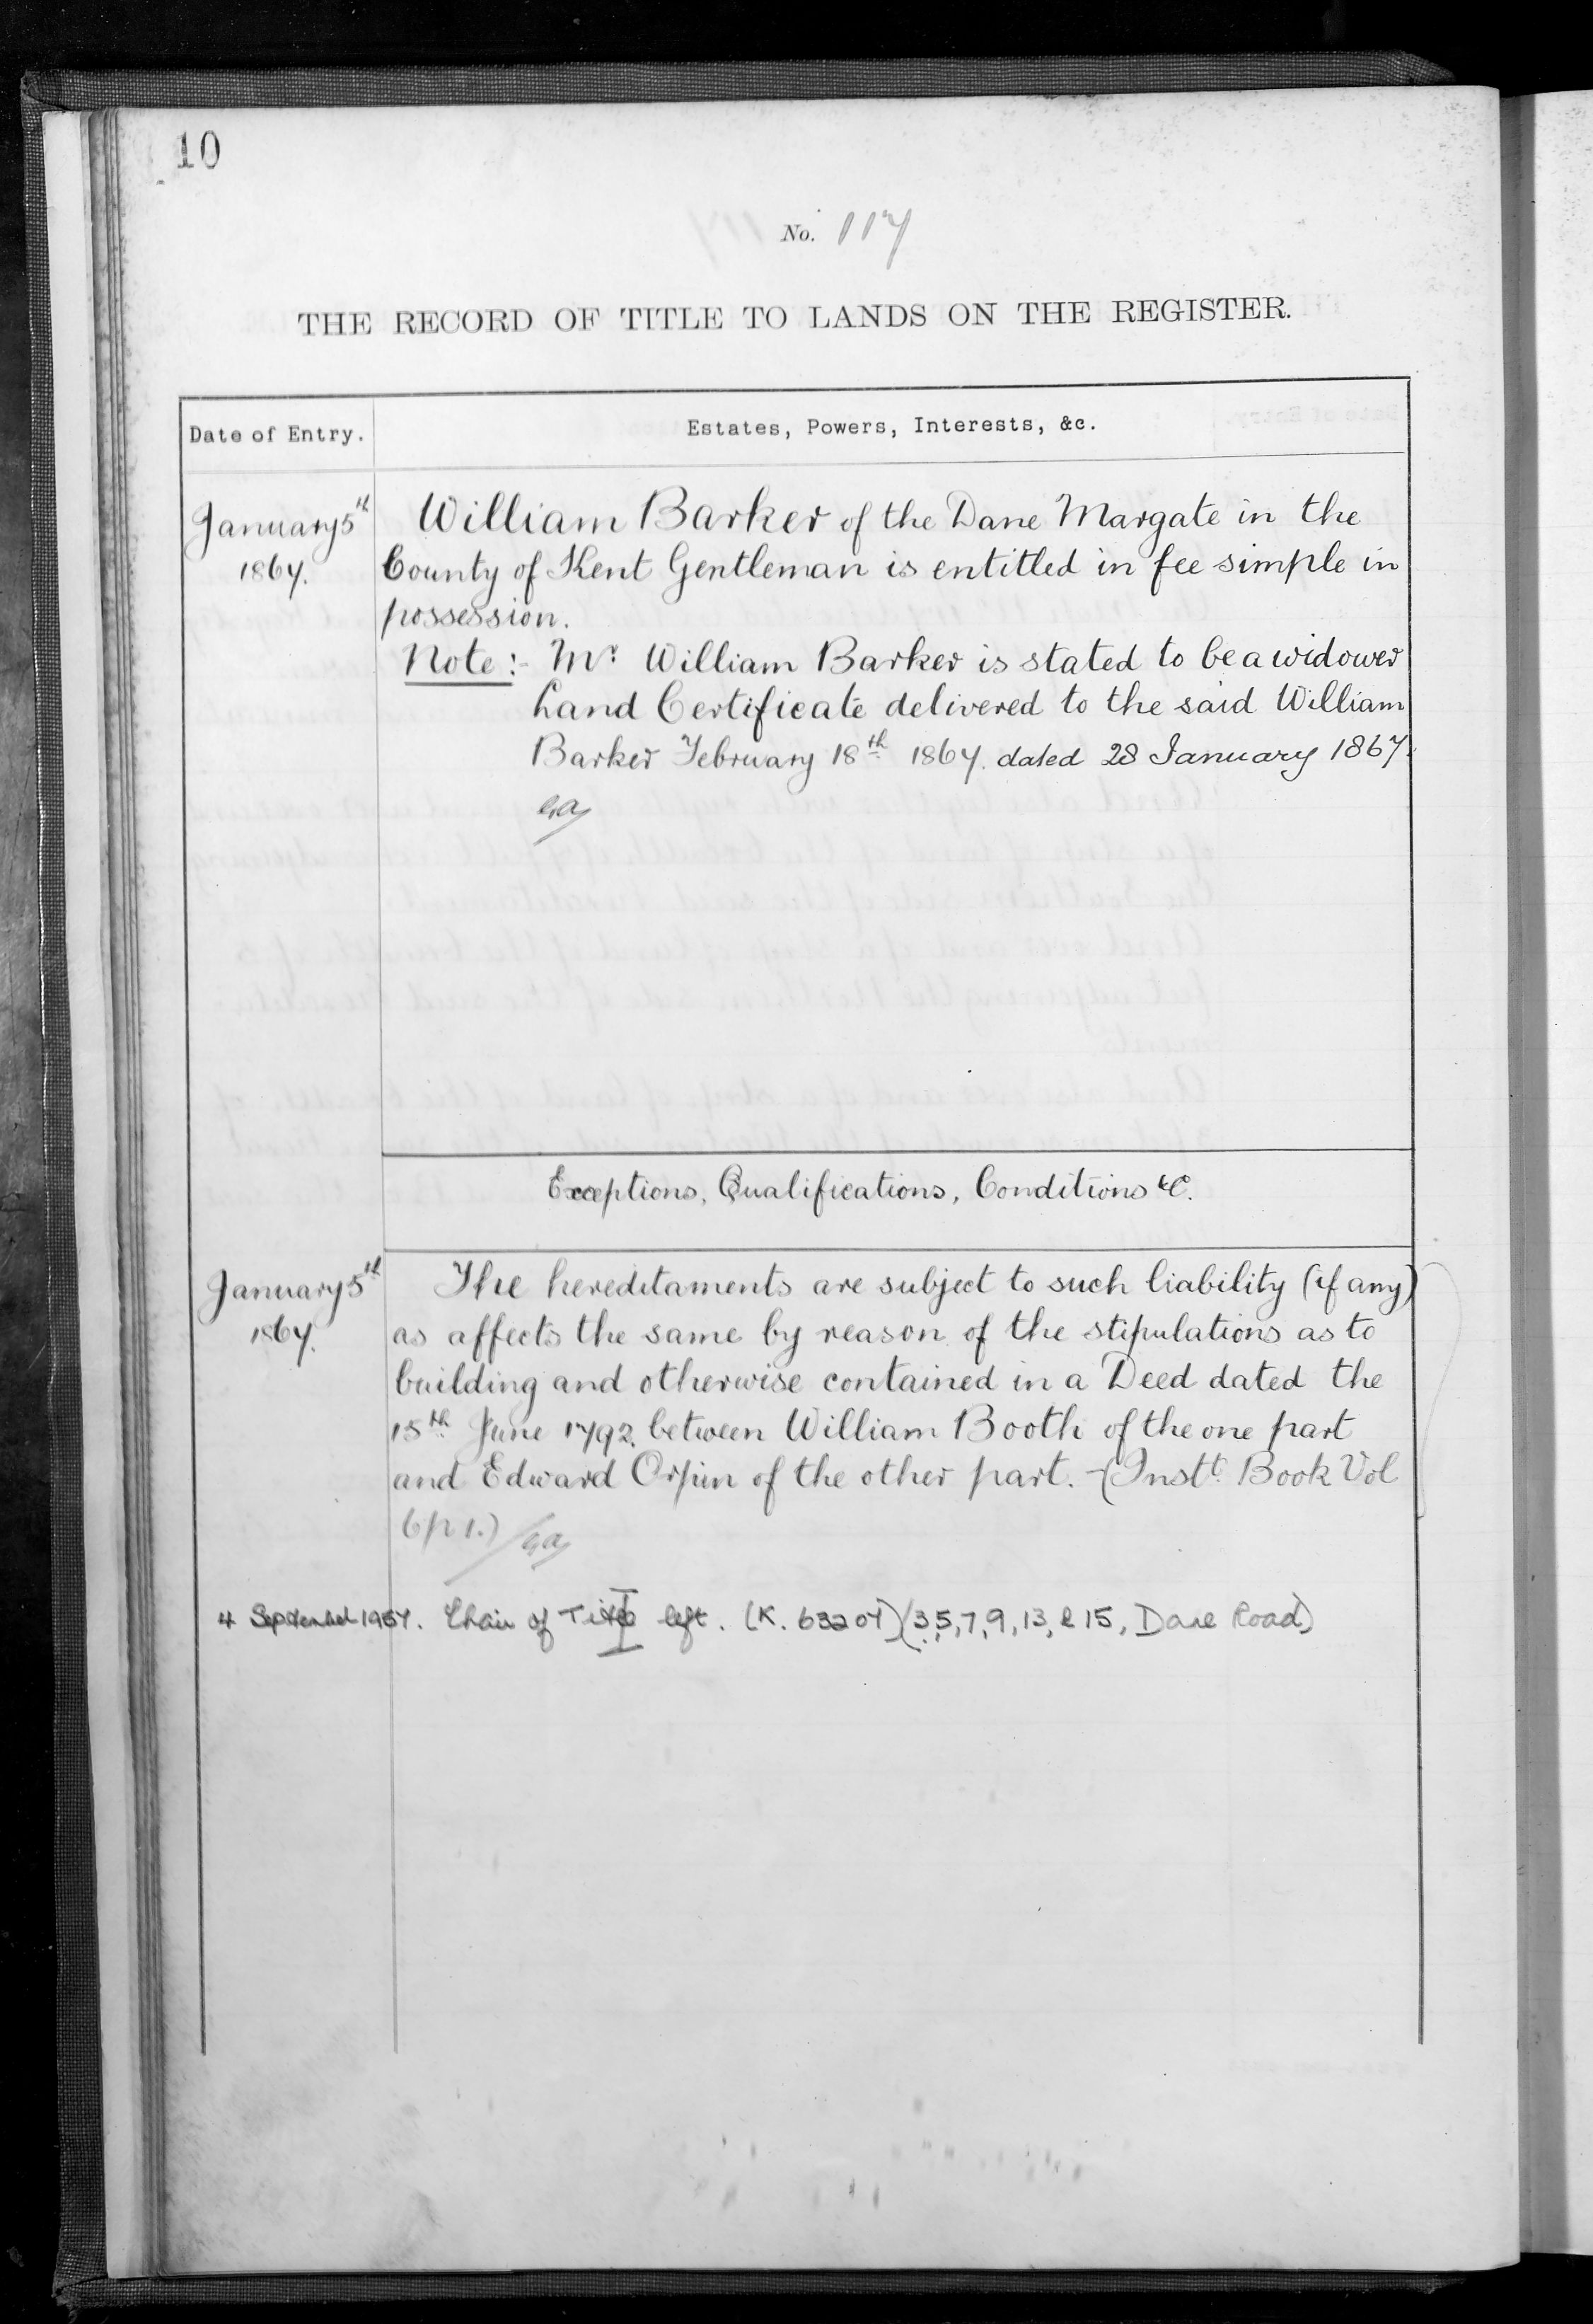 10
No. 117
THE RECORD OF TITLE TO LANDS ON THE REGISTER.
Date of Entry.
Estates, Powers, Interests, &c.
January 5th
1867.
William Barker of the Dane Margate in the
County of Kent Gentleman is entitled in fee simple in
possession.
Note:- Mr William Barker is stated to be a widower
Land Certificate delivered to the said William
Barker February 18th 1867. dated 28 January 1867.
Exceptions, Qualifications, Conditions &c.
January 5th
1867.
The hereditaments are subject to such liability (if any)
as affects the same by reason of the stipulations as to
building and otherwise contained in a Deed dated the
15th June 1792 between William Booth of the one part
and Edward Orpin of the other part. - (Instt. Book Vol
6 p 1.)
4 September 1957. Chain of Title left. (K. 63207) (3, 5, 7, 9, 13, & 15, Dane Road)